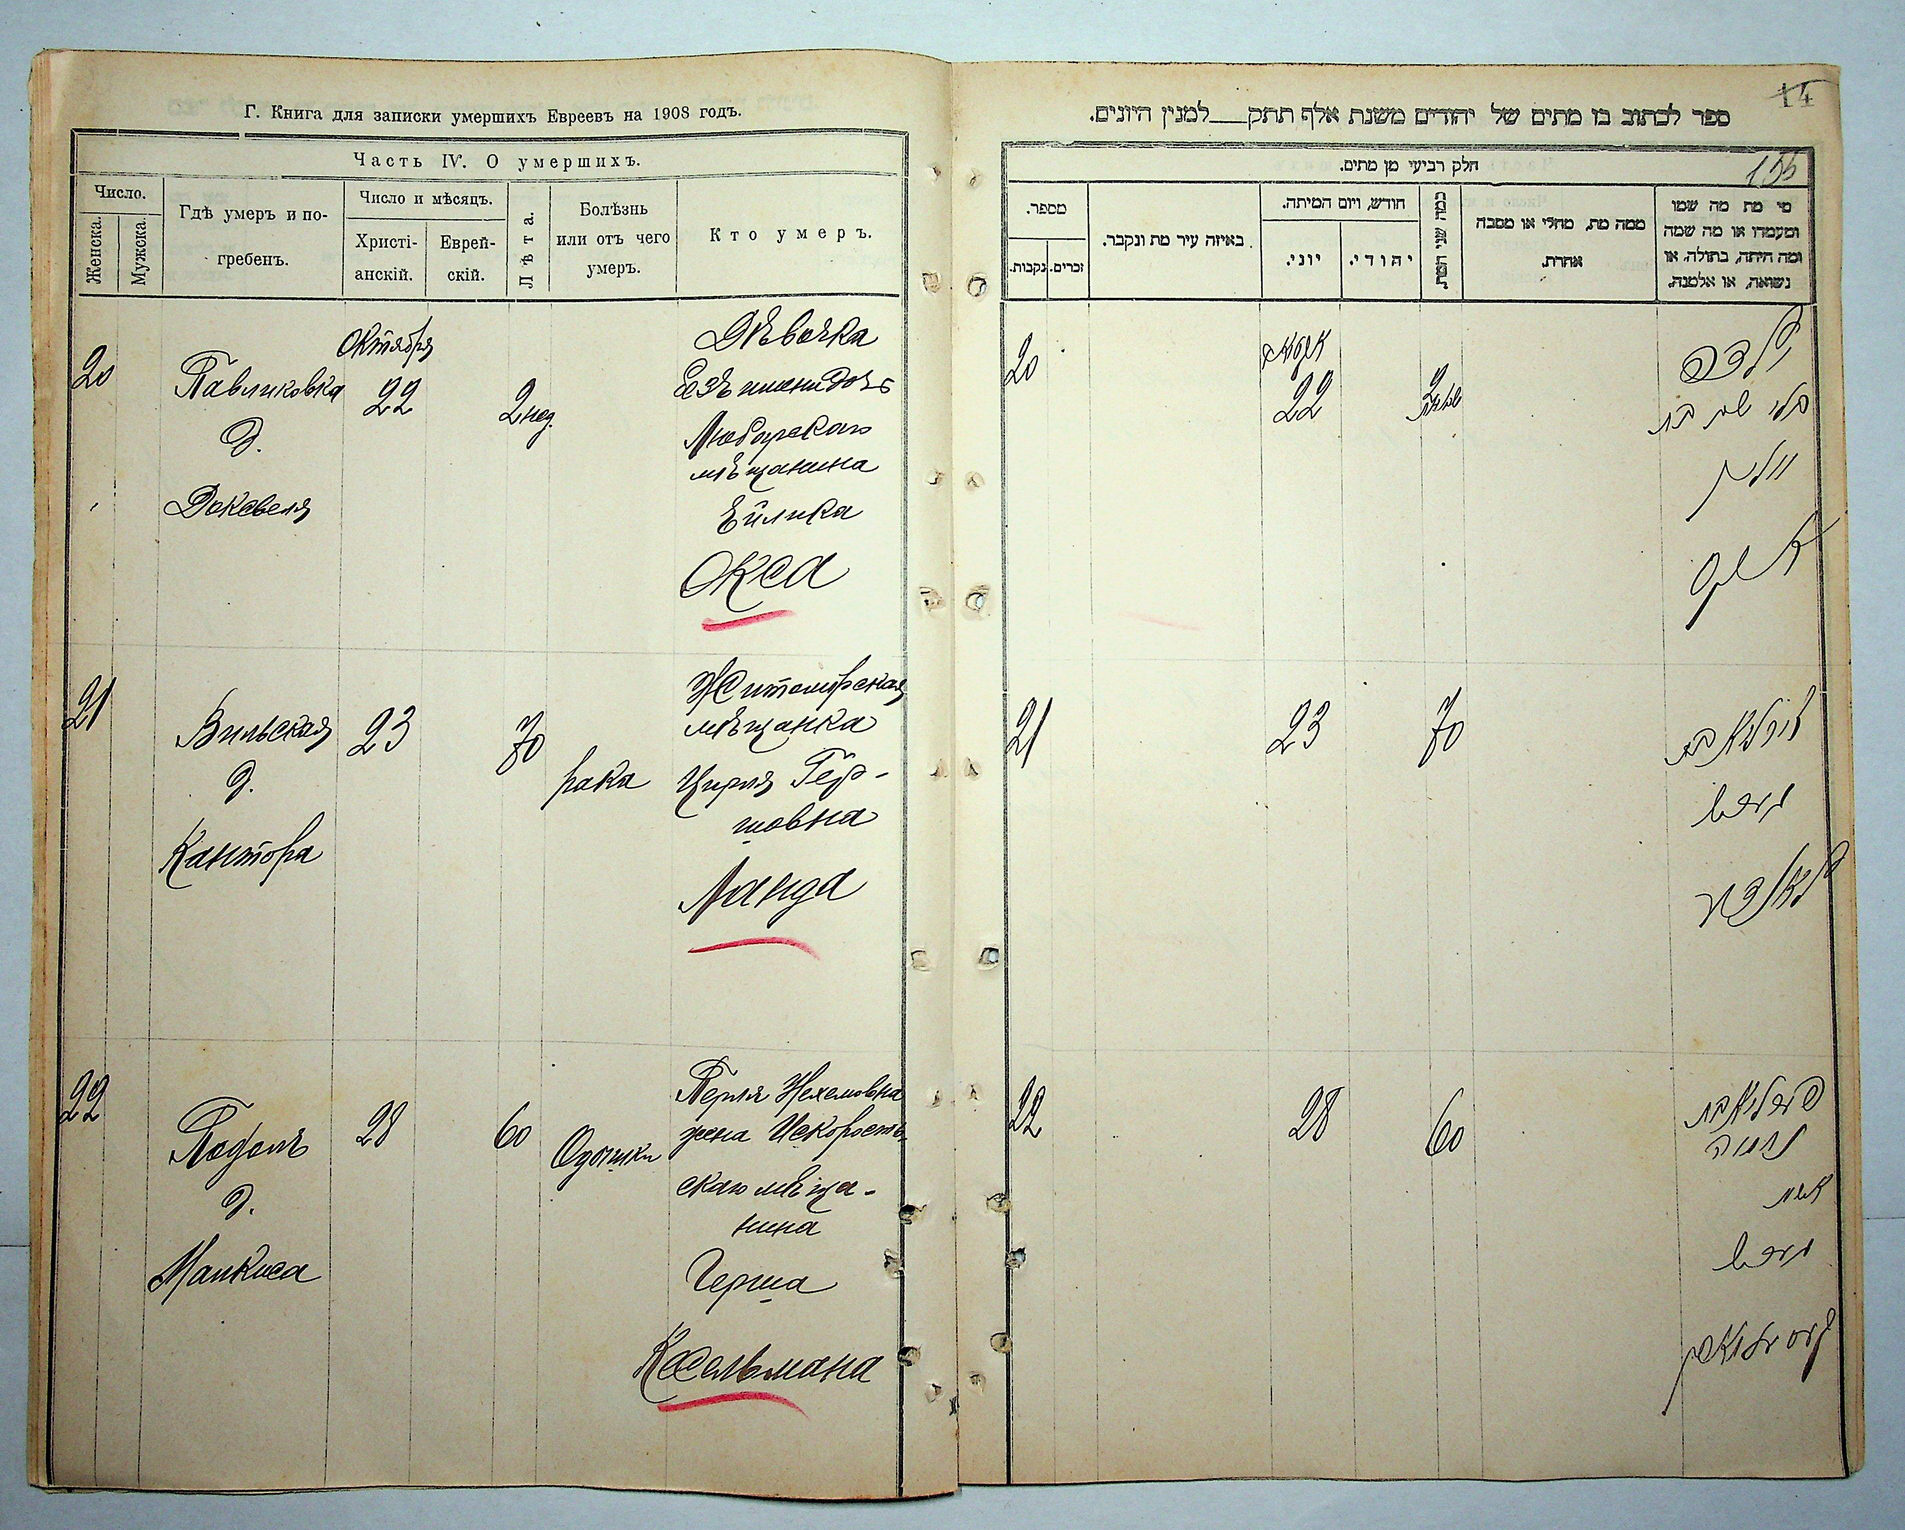 Г. Книга для записки умершихъ Евреевъ на 1908 годъ.
Часть IV. О умершихъ.
Число.
Женска.
Мужска.
Гдѣ умеръ и по-
гребенъ.
Число и мѣсяцъ.
Христі-
анскій.
Еврей-
скій.
Лѣта.
Болѣзнь
или отъ чего
умеръ.
Кто умеръ.
20
Павликовка
д.
Октября
22
2 нед.
Дѣвочка
безъ имени дочь
Любарскаго
мѣщанина
Ейлика
Окса
21
Вильская
д.
Кантора
23
70
рака
Житомирская
мѣщанка
Цирля Гер-
шовна
Ланда
22
Подолъ
д.
28
60
Одышки
Перля Нехемовна
жена Искорост-
скаго мѣща-
нина
Герша
Косельмана
14
ספר לכתוב בו מתים של יהודים משנת אלף תתק למנין היונים.
155
חלק רביעי מן מתים.
מספר.
נקבות.
זכרים.
באיזה עיר מת ונקבר.
חודש, ויום המיתה.
יוני.
יהודי.
כמה שני המת.
ממה מת, מחלי או מסבה
אחרת.
מי מת מה שמו
ומעמדו או מה שמה
ומה היתה, בתולה, או
נשואה, או אלמנה.
20
22
2
ילדה
בלי שם בת
אקס
21
23
70
צירליא בת
הערש
לאנדע
22
28
60
פערליא בת
נחמיה
אשת
הערש